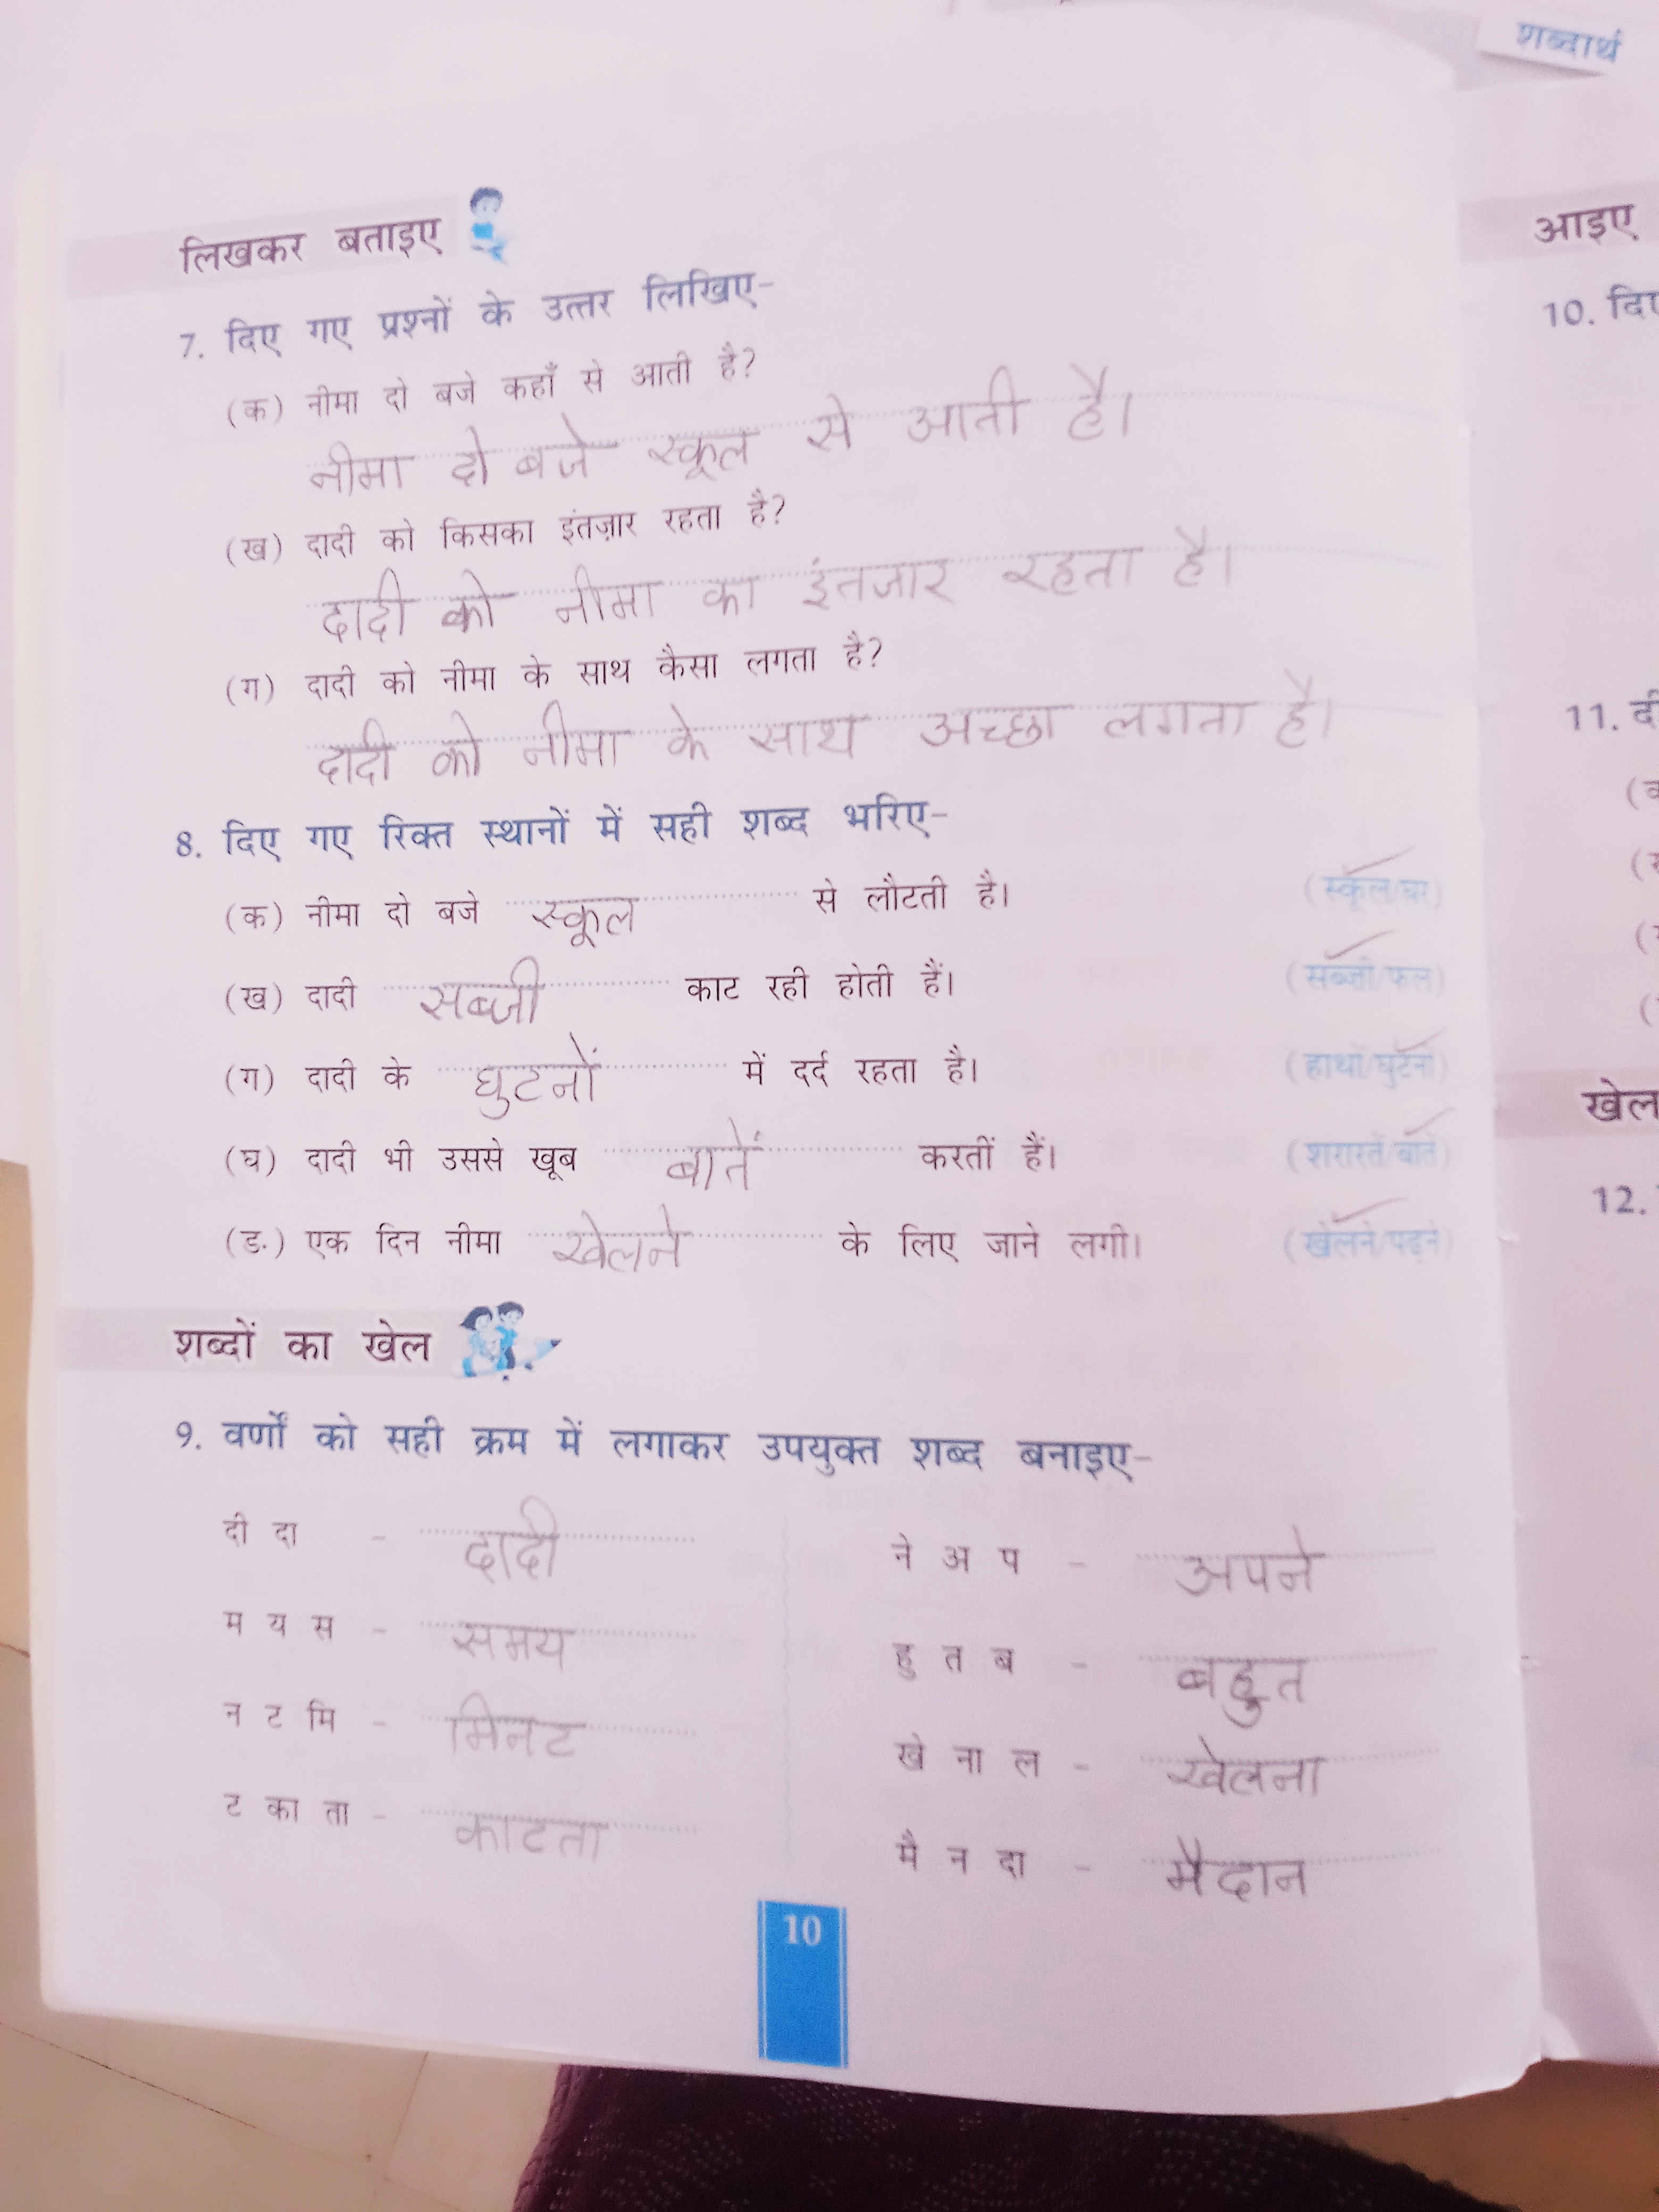 शब्दार्थ
लिखकर बताइए
7. दिए गए प्रश्नों के उत्तर लिखिए-
(क) नीमा दो बजे कहाँ से आती है?
नीमा दो बजे स्कूल से आती है।
(ख) दादी को किसका इंतज़ार रहता है?
दादी को नीमा का इंतजार रहता है।
(ग) दादी को नीमा के साथ कैसा लगता है?
दादी को नीमा के साथ अच्छा लगता है।
8. दिए गए रिक्त स्थानों में सही शब्द भरिए-
(क) नीमा दो बजे स्कूल से लौटती है। (स्कूल/घर)
(ख) दादी सब्जी काट रही होती हैं। (सब्जी/फल)
(ग) दादी के घुटनों में दर्द रहता है। (हाथों/घुटनों)
(घ) दादी भी उससे खूब बातें करतीं हैं। (शरारतें/बातें)
(ङ) एक दिन नीमा खेलने के लिए जाने लगी। (खेलने/पढ़ने)
शब्दों का खेल
9. वर्णों को सही क्रम में लगाकर उपयुक्त शब्द बनाइए-
दी दा - दादी
म य स - समय
न ट मि - मिनट
ट का ता - काटता
ने अ प - अपने
हु त ब - बहुत
खे ना ल - खेलना
मै न दा - मैदान
10
आइए
10.
11.
खेल
12.